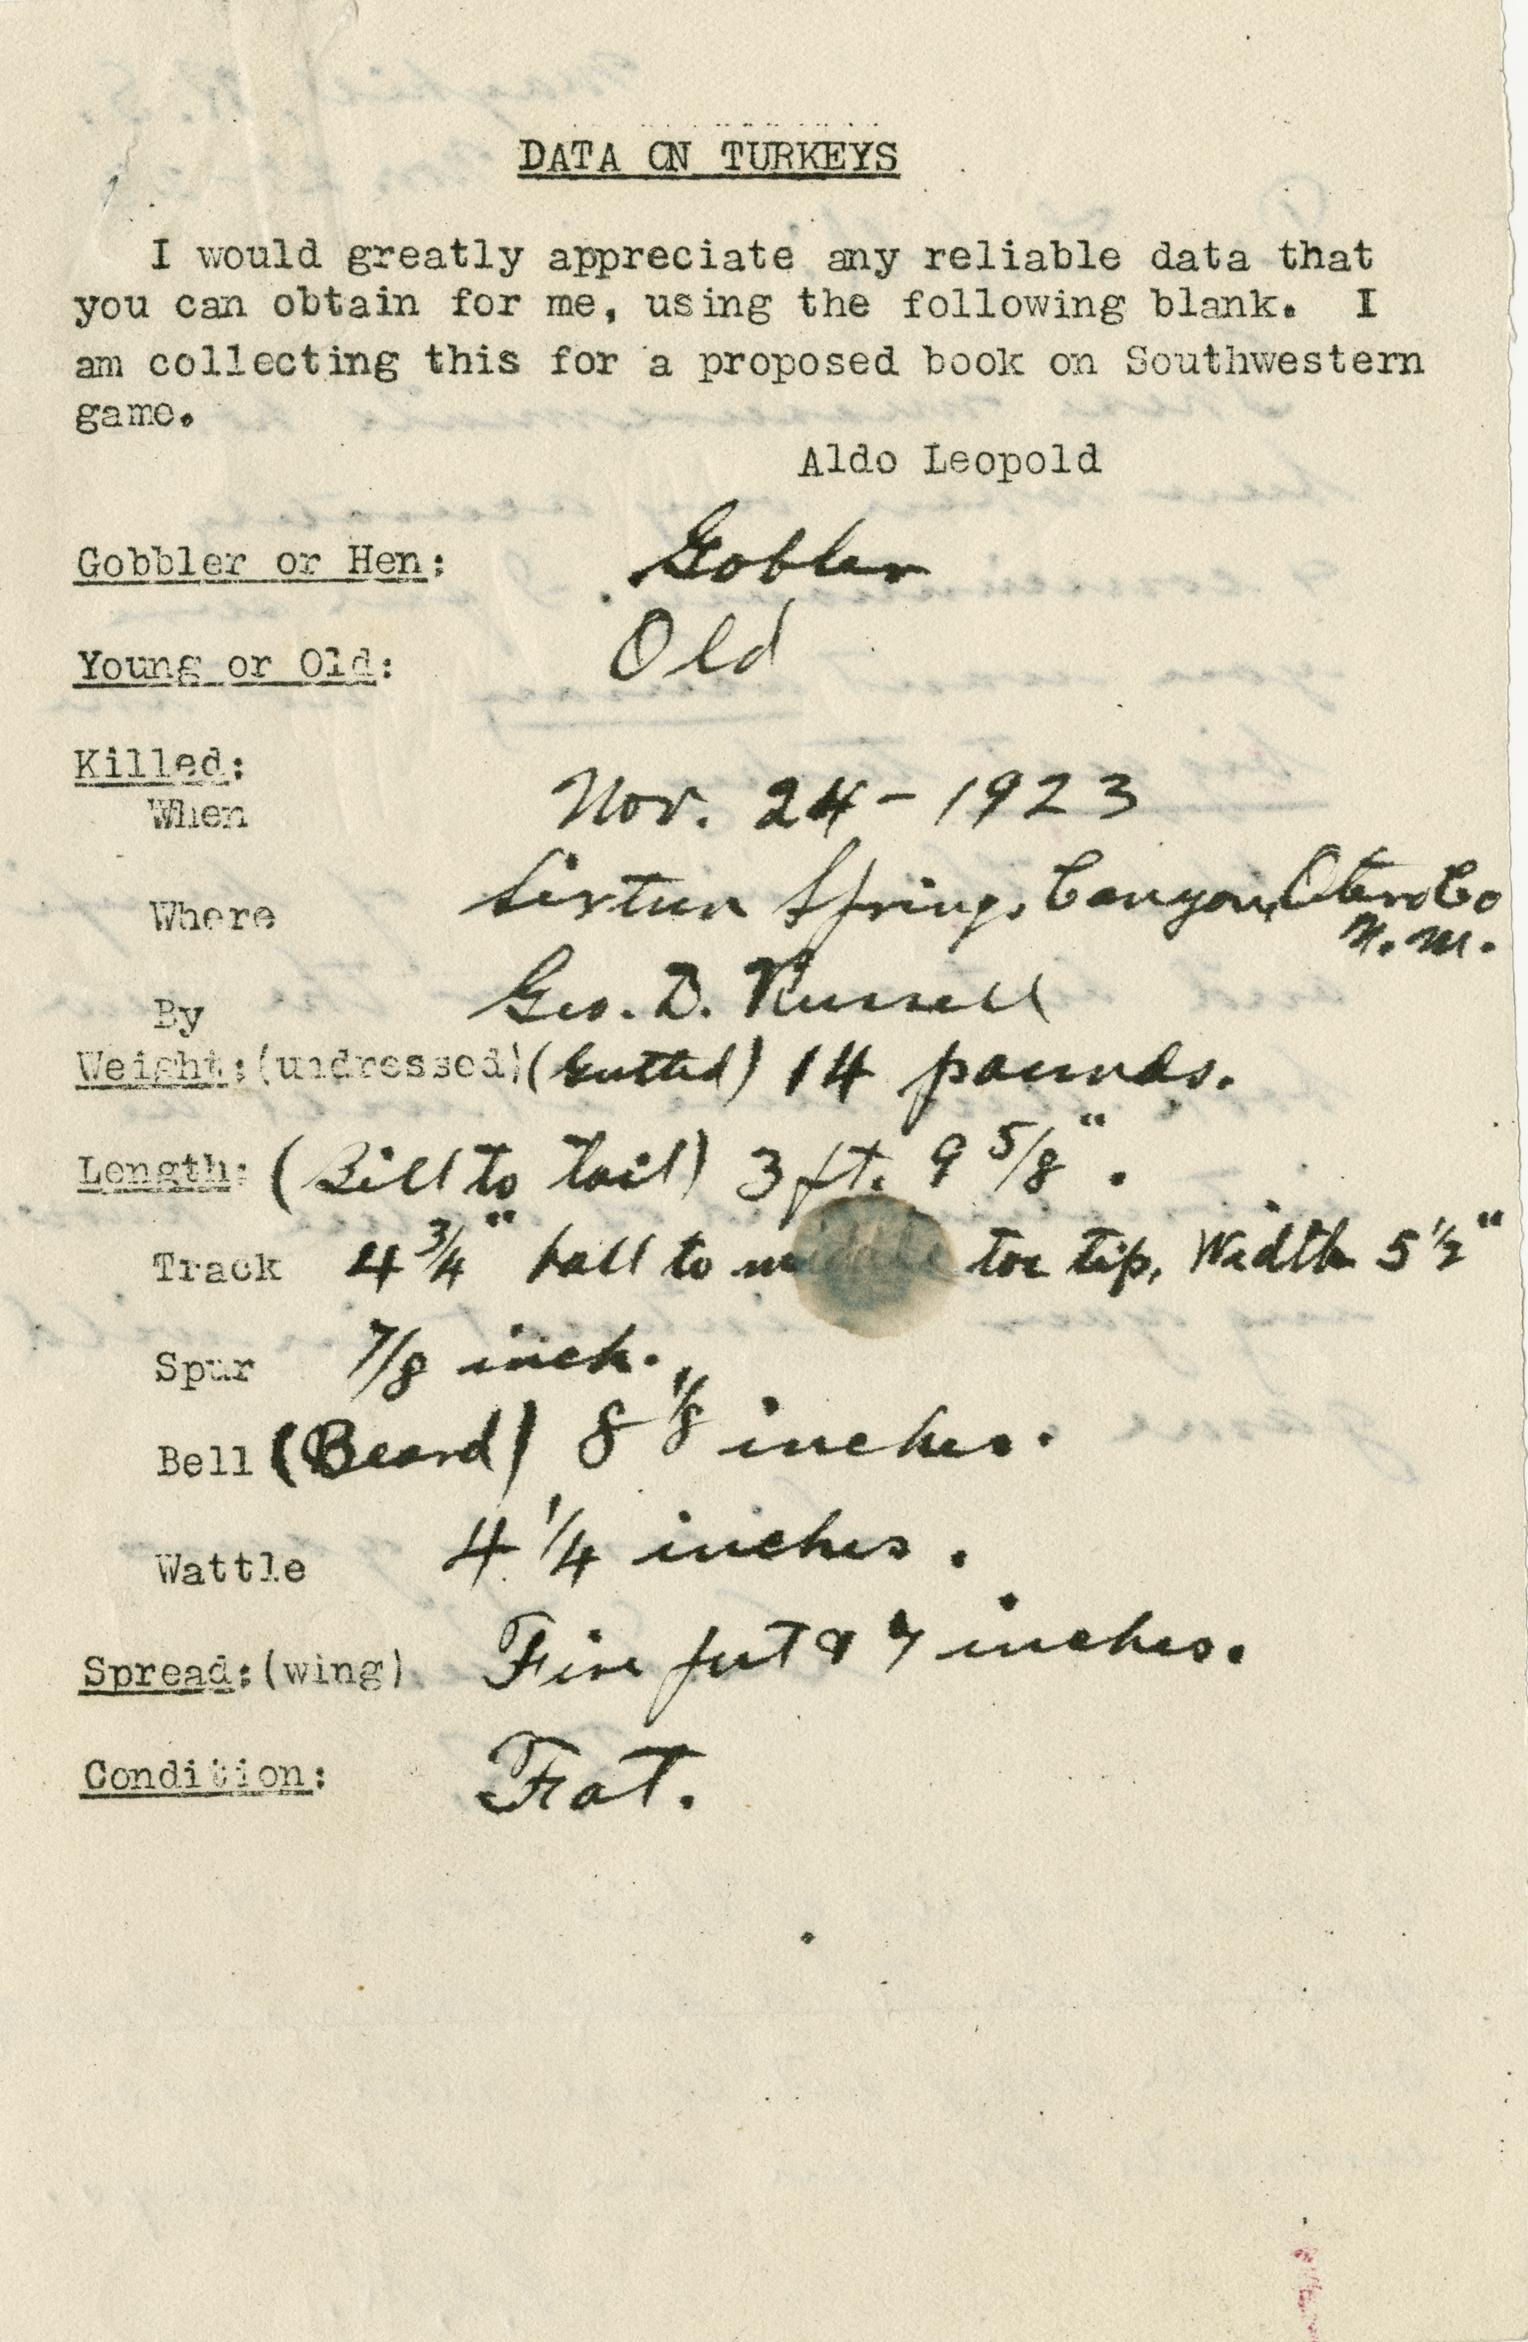 DATA ON TURKEYS
I would greatly appreciate any reliable data that
you can obtain for me, using the following blank. I
am collecting this for a proposed book on Southwestern
game.
Aldo Leopold
Gobbler or Hen: Gobler
Young or Old: Old
Killed:
When Nov. 24 - 1923
Where Sixteen Springs Canyon, Otero Co
N. M.
By Geo. D. Russell
Weight: (undressed) (Gutted) 14 pounds.
Length: (Bill to tail) 3 ft. 9 5/8".
Track 4 3/4" ball to middle toe tip, Width 5 1/2"
Spur 7/8 inch.
Bell (Beard) 8 1/8 inches.
Wattle 4 1/4 inches.
Spread: (wing) Five feet & 7 inches.
Condition: Fat.